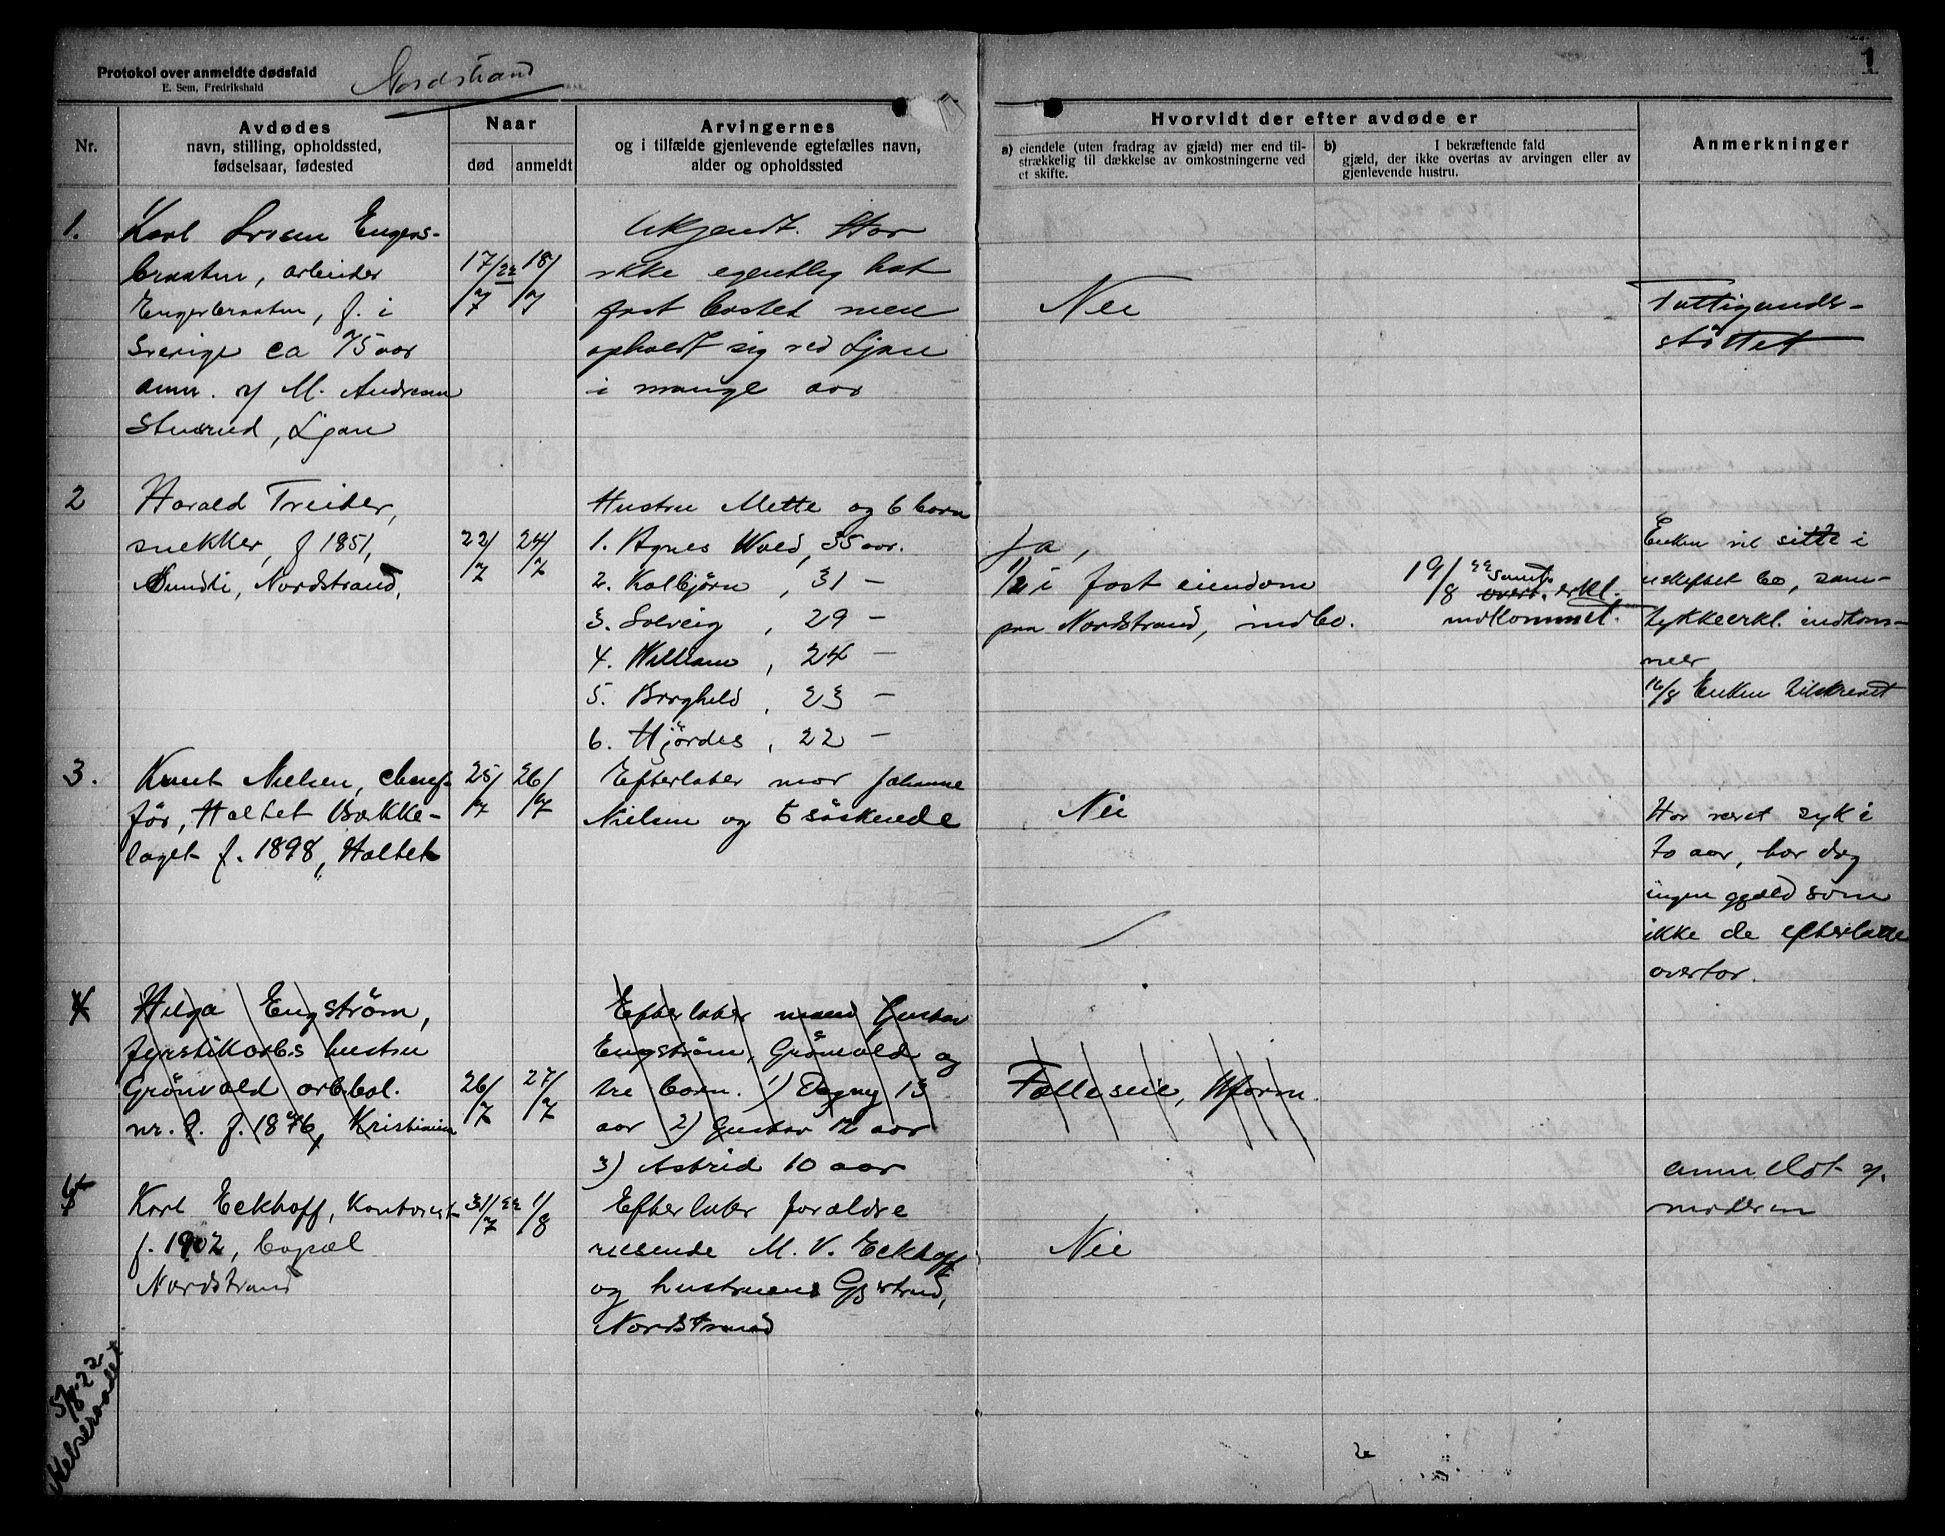 Protokol over anmeldte dødsfald
E. Sem, Fredrikshald
Nordstrand
1
Nr.
Avdødes
navn, stilling, opholdssted,
fødselsaar, fødested
Naar
død
anmeldt
Arvingernes
og i tilfælde gjenlevende egtefælles navn,
alder og opholdssted
Hvorvidt der efter avdøde er
a) eiendele (uten fradrag av gjæld) mer end til-
strækkelig til dækkelse av omkostningerne ved
et skifte.
b) I bekræftende fald
gjæld, der ikke overtas av arvingen eller av
gjenlevende hustru.
Anmerkninger
1.
Karl Enger-
braaten, arbeider
Engerbraaten, f. i
Sverige ca 75 aar
anm. v/ M. Andresen
Stuverud, Ljan
17/7 22
18/7
Ukjendt. Har
ikke egentlig hat
fast bosted men
opholdt sig ved Ljan
i mange aar
Nei
Fattigunder-
støttet
2
Harald Treider,
snekker, f 1851,
Nordstrand,
22/7
24/7
Hustru Mette og 6 born
1. Agnes Wold, 35 aar.
2. Kolbjørn, 31 -
3. Solveig, 29 -
4. William, 24 -
5. Borghild, 23 -
6. Hjørdes, 22 -
Ja,
1/2 i fast eiendom
paa Nordstrand, indbo.
19/8 22 samt.
overt. erkl.
indkommet.
Enken vil sitte i
uskiftet bo, sam-
tykkeerkl. indkom-
mer
16/8 Enken tilskrevet
3.
Knut Nielsen, chauf-
før, Holtet Bække-
laget f. 1898, Holtet
25/7
26/7
Efterlater mor Johanne
Nielsen og 6 søskende
Nei
Har været syk i
to aar, har dog
ingen gjæld som
ikke de efterlatte
overtar.
4
Helga Engstrøm,
fyrstikarb.s hustru
Grønvold arb.bol.
nr. 9. f. 1876, Kristiania
26/7
27/7
Efterlater mand Gustav
Engstrøm, Grønvold og
tre born. 1) Dagny 13
aar 2) Gustav 12 aar
3) Astrid 10 aar
Fælleseie,
5
Karl Eckhoff, Kontorist
f. 1902, bopæl
Nordstrand
31/7 22
1/8
Efterlater forældre
reisende M. V. Eckhoff
og hustruens Gjertrud,
Nordstrand
Nei
anmeldt v.
moderen
5/8.22
Helseraadet